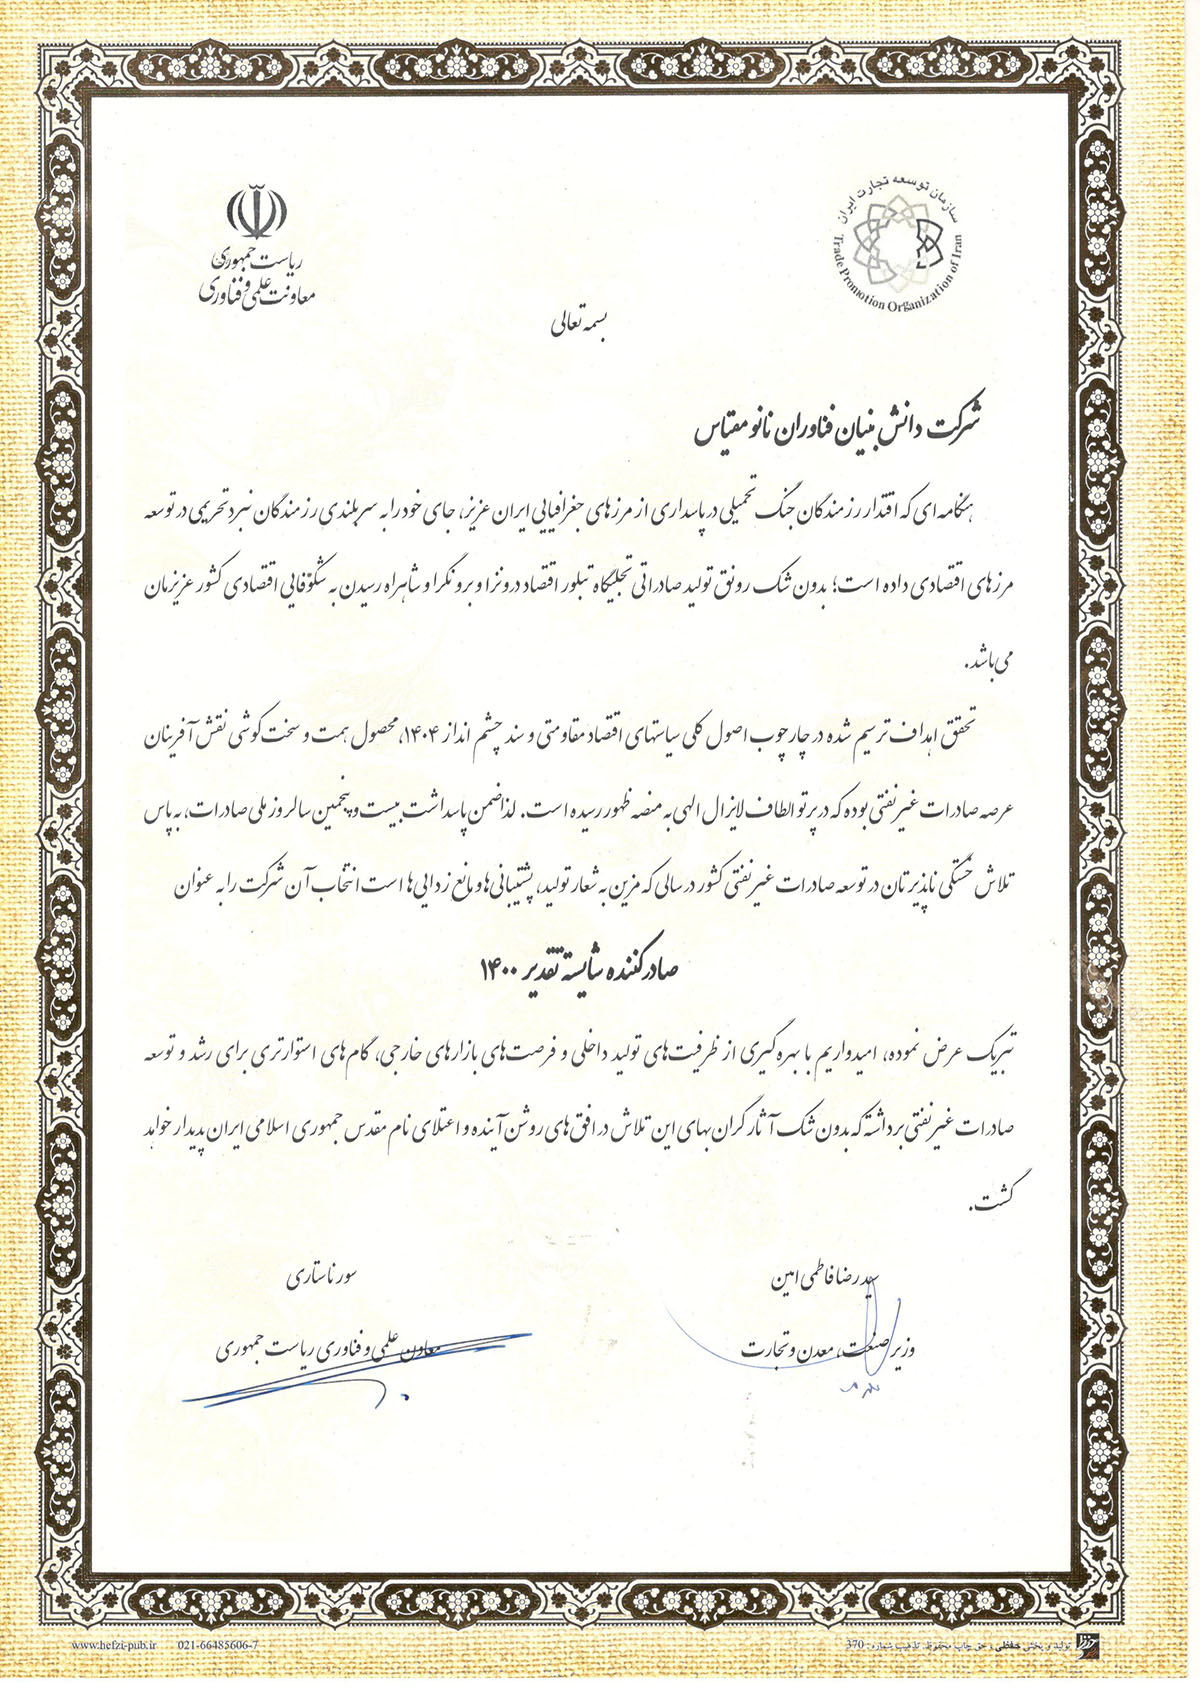 سازمان توسعه تجارت ایران
Trade Promotion Organization of Iran
ریاست جمهوری
معاونت علمی و فناوری
بسمه تعالی
شرکت دانش بنیان فناوران نانو مقیاس
هنگامه ای که اقتدار رزمندگان جنگ تحمیلی در پاسداری از مرزهای جغرافیایی ایران عزیز، جای خود را به سربلندی رزمندگان نبرد تحریمی در توسعه
مرزهای اقتصادی داده است؛ بدون شک رونق تولید صادراتی تجلیگاه تبلور اقتصاد درونزا و برونگرا و شاهراه رسیدن به شکوفایی اقتصادی کشور عزیزمان
می باشد.
تحقق اهداف ترسیم شده در چارچوب اصول کلی سیاستهای اقتصاد مقاومتی و سند چشم انداز ۱۴۰۴، محصول همت و سخت کوشی نقش آفرینان
عرصه صادرات غیرنفتی بوده که در پرتو الطاف لایزال الهی به منصه ظهور رسیده است. لذا ضمن پاسداشت بیست و پنجمین سالروز ملی صادرات، به پاس
تلاش خستگی ناپذیرتان در توسعه صادرات غیرنفتی کشور در سالی که مزین به شعار تولید، پشتیبانی ها و مانع زدایی ها است انتخاب آن شرکت را به عنوان
صادرکننده شایسته تقدیر ۱۴۰۰
تبریک عرض نموده، امیدواریم با بهره گیری از ظرفیت های تولید داخلی و فرصت های بازارهای خارجی، گام های استوارتری برای رشد و توسعه
صادرات غیرنفتی برداشته که بدون شک آثار گران بهای این تلاش در افق های روشن آینده و اعتلای نام مقدس جمهوری اسلامی ایران پدیدار خواهد
گشت.
سید رضا فاطمی امین
وزیر صنعت، معدن و تجارت
سورنا ستاری
معاون علمی و فناوری ریاست جمهوری
تولید و پخش حفظی ، حق چاپ محفوظ. تذهیب شماره: 370
021-66485606-7
www.hefzi-pub.ir